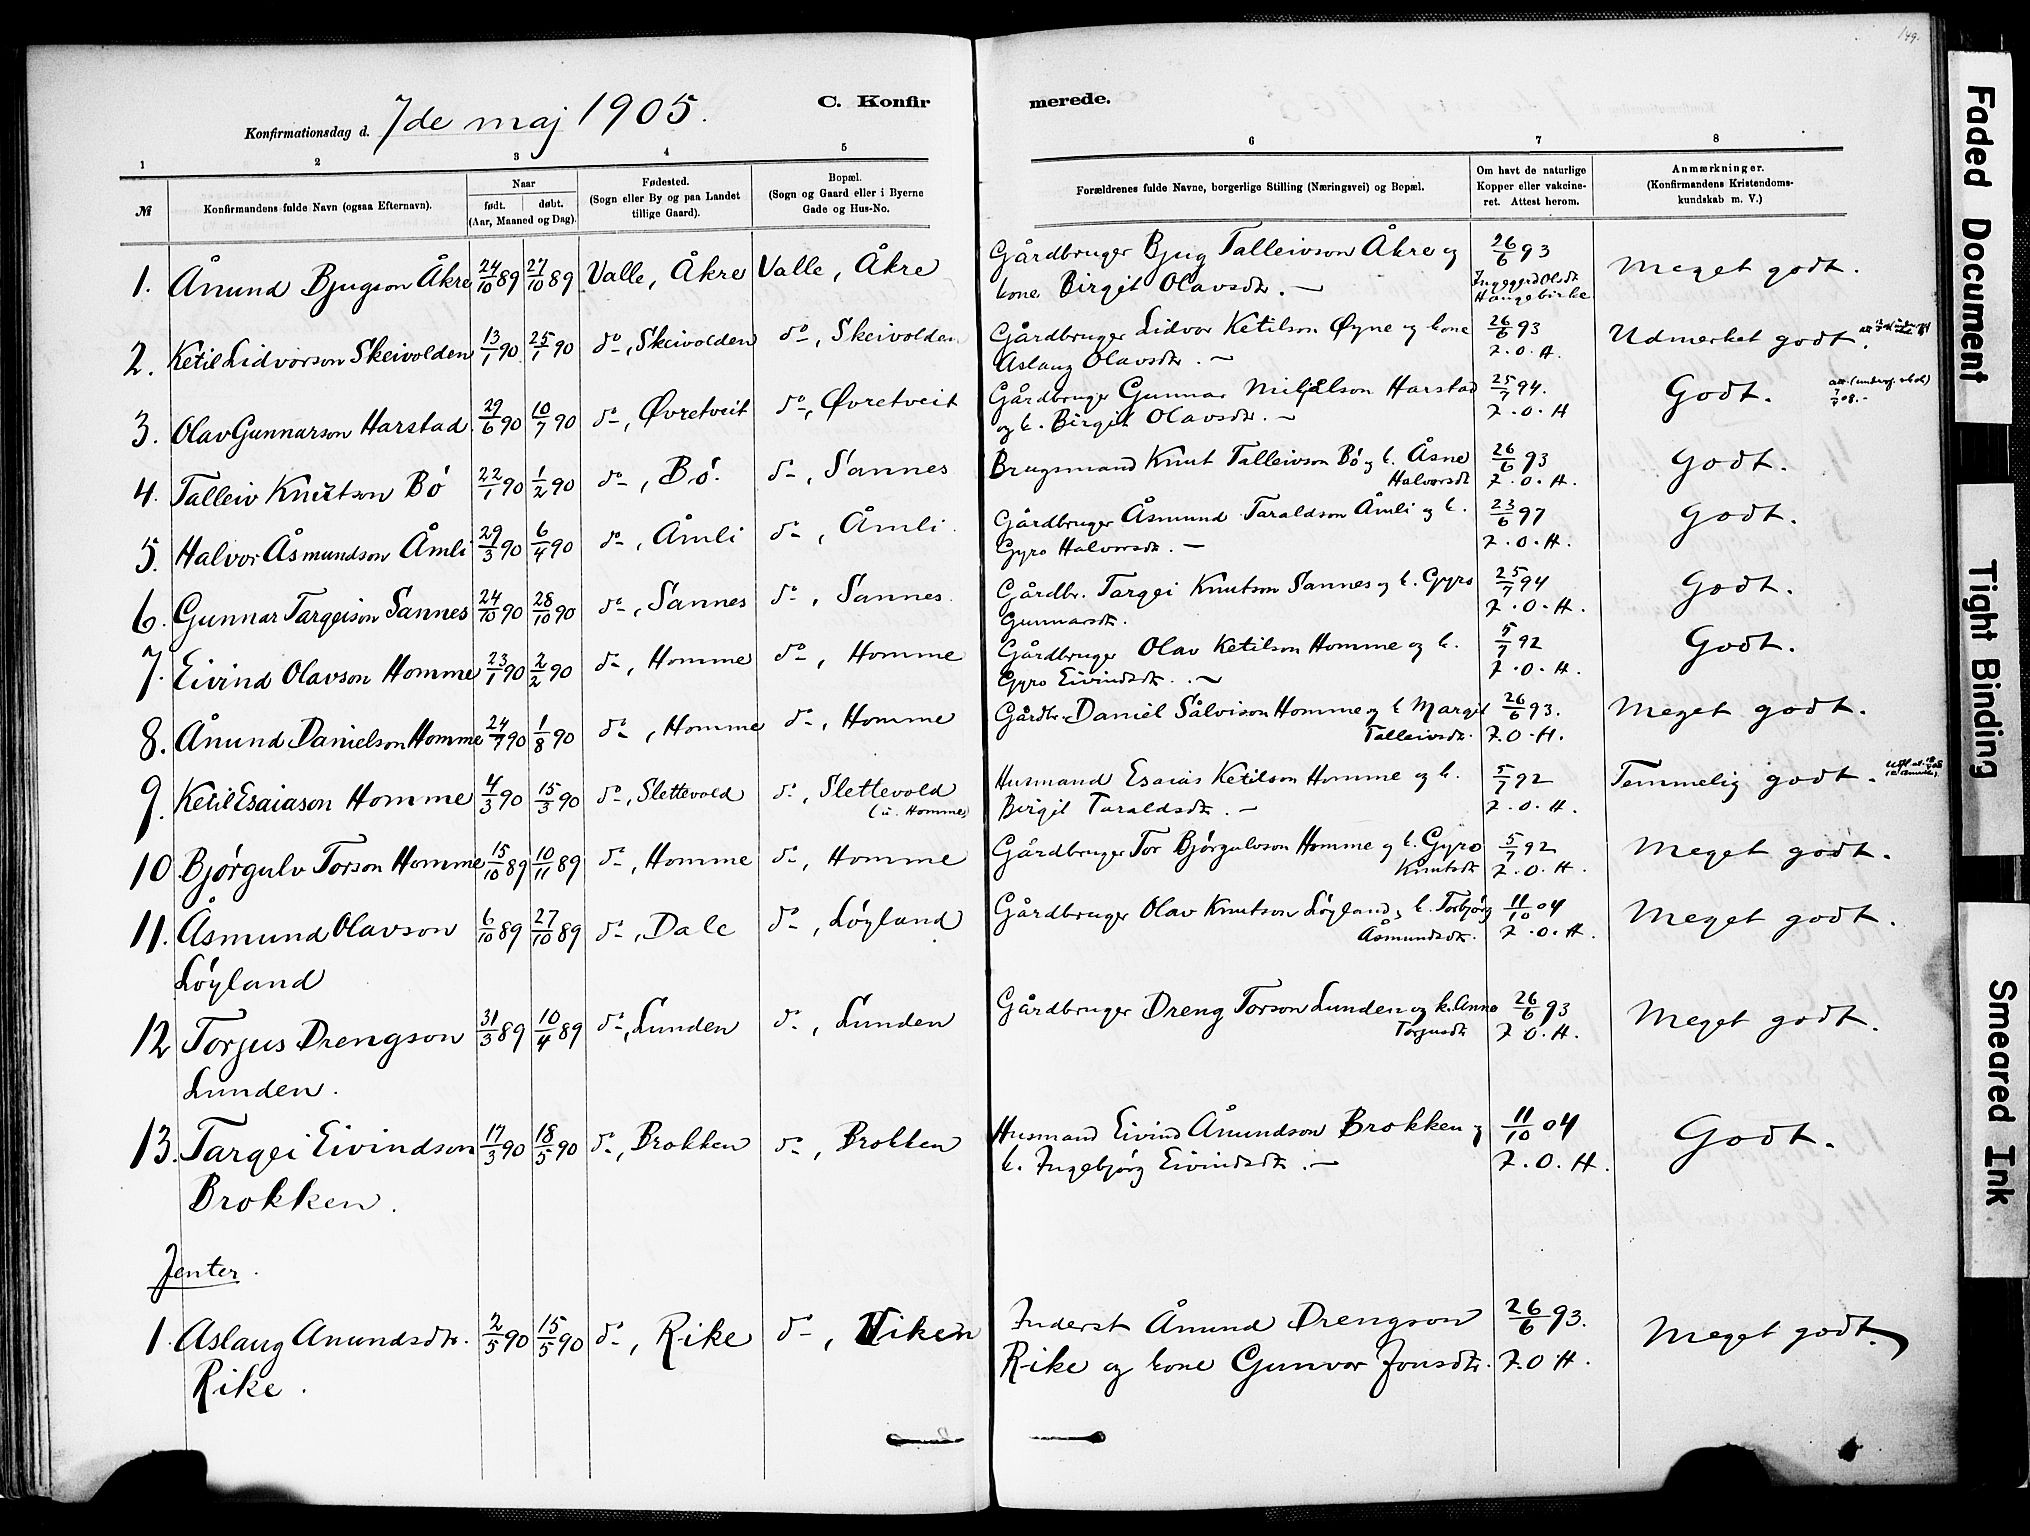 149.
Konfirmationsdag d. 7de maj 1905.
C. Konfirmerede.
1 2 3 4 5 6 7 8
№
Konfirmandens fulde Navn (ogsaa Efternavn).
Naar
født. døbt.
(Aar, Maaned og Dag).
Fødested.
(Sogn eller By og paa Landet
tillige Gaard).
Bopæl.
(Sogn og Gaard eller i Byerne
Gade og Hus-No.
Forældrenes fulde Navne, borgerlige Stilling (Næringsvei) og Bopæl.
Om havt de naturlige
Kopper eller vakcine-
ret. Attest herom.
Anmærkninger.
(Konfirmandens Kristendoms-
kundskab m. V.)
1. Ånund Bjugson Åkre 24/10 89 27/10 89 Valle, Åkre Valle, Åkre Gårdbruger Bjug Talleivson Åkre og 26/6 93 Meget godt.
kone Birgit Olavsdtr. — Ingeggerd Olsdt Haugebirke
2. Ketil Lidvorson Skeivolden 13/1 90. 25/1 90 do, Skeivolden do, Skeivolden Gårdbruger Lidvor Ketilson Øyne og kone 26/6 93 Udmerket godt.
Aslaug Olavsdtr. — I.O.H.
3. Olav Gunnarson Harstad. 29/6 90 10/7 90 do, Øvretveit do, Øvretveit Gårdbruger Gunnar Harstad 25/7 94. Godt.
og k. Birgit Olavsdtr. — I.O.H
4. Talleiv Knutson Bø 22/1 90 1/2 90 do, Bø. do, Sannes Brugsmand Knut Talleivson Bø og k. Åsne 26/6 93 Godt.
Halvorsdt I.O.H.
5. Halvor Åsmundson Åmli 29/3 90 6/4 90 do, Åmli do, Åmli. Gårdbruger Åsmund Taraldson Åmli og k. 23/6 97 Godt.
Gyro Halvorsdtr. — I.O.H.
6. Gunnar Targeison Sannes 24/10 90 28/10 90 do, Sannes do, Sannes. Gårdbr. Targei Knutson Sannes og k. Gyro 25/7 94 Godt.
Gunnarsdt. I.O.H.
7. Eivind Olavson Homme 23/1 90 2/2 90 do, Homme do, Homme Gårdbruger Olav Ketilson Homme og k. 5/7 92 Godt.
Gyro Eivindsdtr. — I.O.H.
8. Ånund Danielson Homme 24/7 90 1/8 90 do, Homme do, Homme Gårdbr. Daniel Sålvison Homme og k Margit 26/6 93. Meget godt.
Talleivsdt. I.O.H.
9. Ketil Esaiason Homme 4/3 90 15/3 90 do, Slettevold do, Slettevold Husmand Esaias Ketilson Homme og k. 5/7 92 Temmelig godt.
(u. Homme) Birgit Taraldsdtr. — I.O.H.
10 Bjørgulv Torson Homme 15/10 89 10/11 89 do, Homme do, Homme Gårdbruger Tor Bjørgulvson Homme og k. Gyro 5/7 92 Meget godt.
Knutsdt I.O.H.
11. Åsmund Olavson 6/10 89 27/10 89 do, Dale do, Løyland Gårdbruger Olav Knutson Løyland og k. Torbjørg 11/10 04 Meget godt.
Løyland Åsmundsdtr. I.O.H.
12 Torjus Drengson 31/3 89 10/4 89 do, Lunden do, Lunden Gårdbruger Dreng Torson Lunden og k. Anne 26/6 93 Meget godt.
Lunden. Torjusdt I.O.H.
13. Targei Eivindson 17/3 90 18/5 90 do, Brokken do, Brokken Husmand Eivind Ånundson Brokken og 11/10 04 Godt.
Brokken. k. Ingebjørg Eivindsdtr. — I.O.H.
Jenter.
1. Aslaug Anundsdtr. 2/5 90 15/5 90 do, Rike do, Viken Inderst Ånund Drengson 26/6 93. Meget godt.
Rike. Rike og kone Gunvor Jonsdtr. I.O.H.
Faded Document
Tight Binding
Smeared Ink